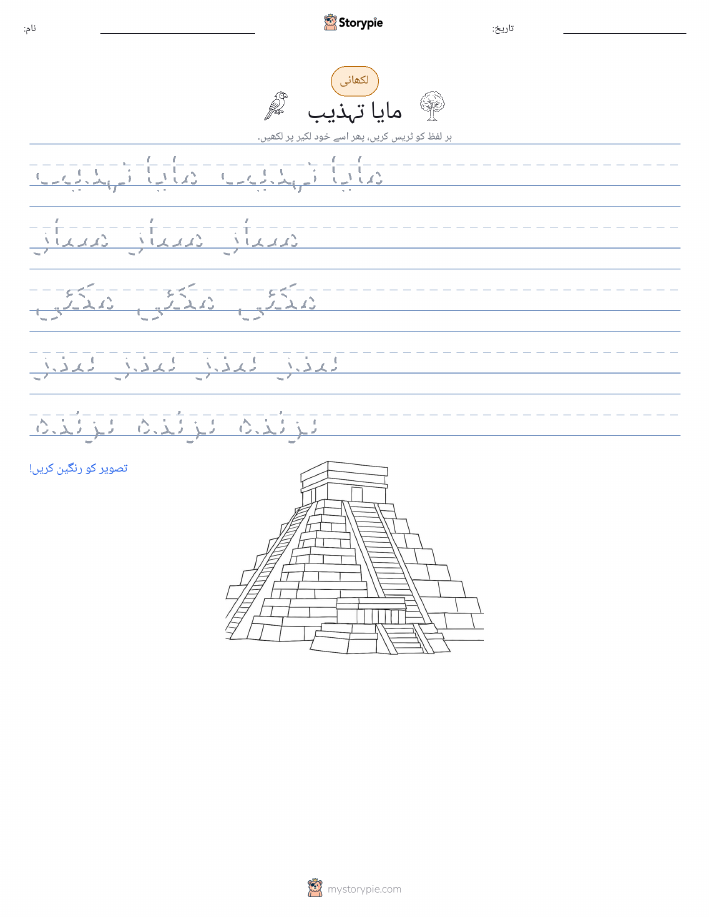 نام:
Storypie
تاریخ:
لکھانی
مایا تہذیب
ہر لفظ کو ٹریس کریں، پھر اسے خود لکیر پر لکھیں۔
مایا تہذیب مایا تہذیب
مینار مینار مینار
مکئی مکئی مکئی
بندر بندر بندر بندر
پرندہ پرندہ پرندہ
تصویر کو رنگین کریں!
mystorypie.com